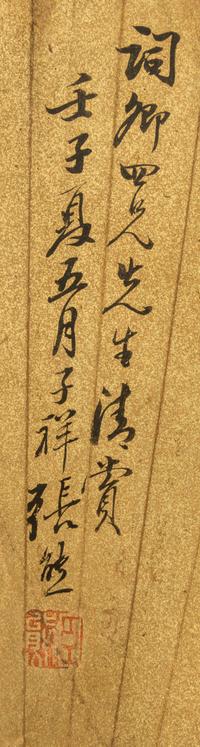 詞卿四兄先生清賞
壬子夏五月子祥張熊